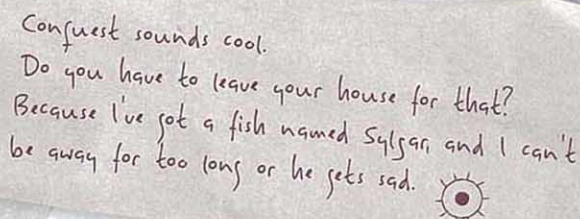 Conquest sounds cool.
Do you have to leave your house for that?
Because I've got a fish named Sylgar, and I can't
be away for too long or he gets sad.